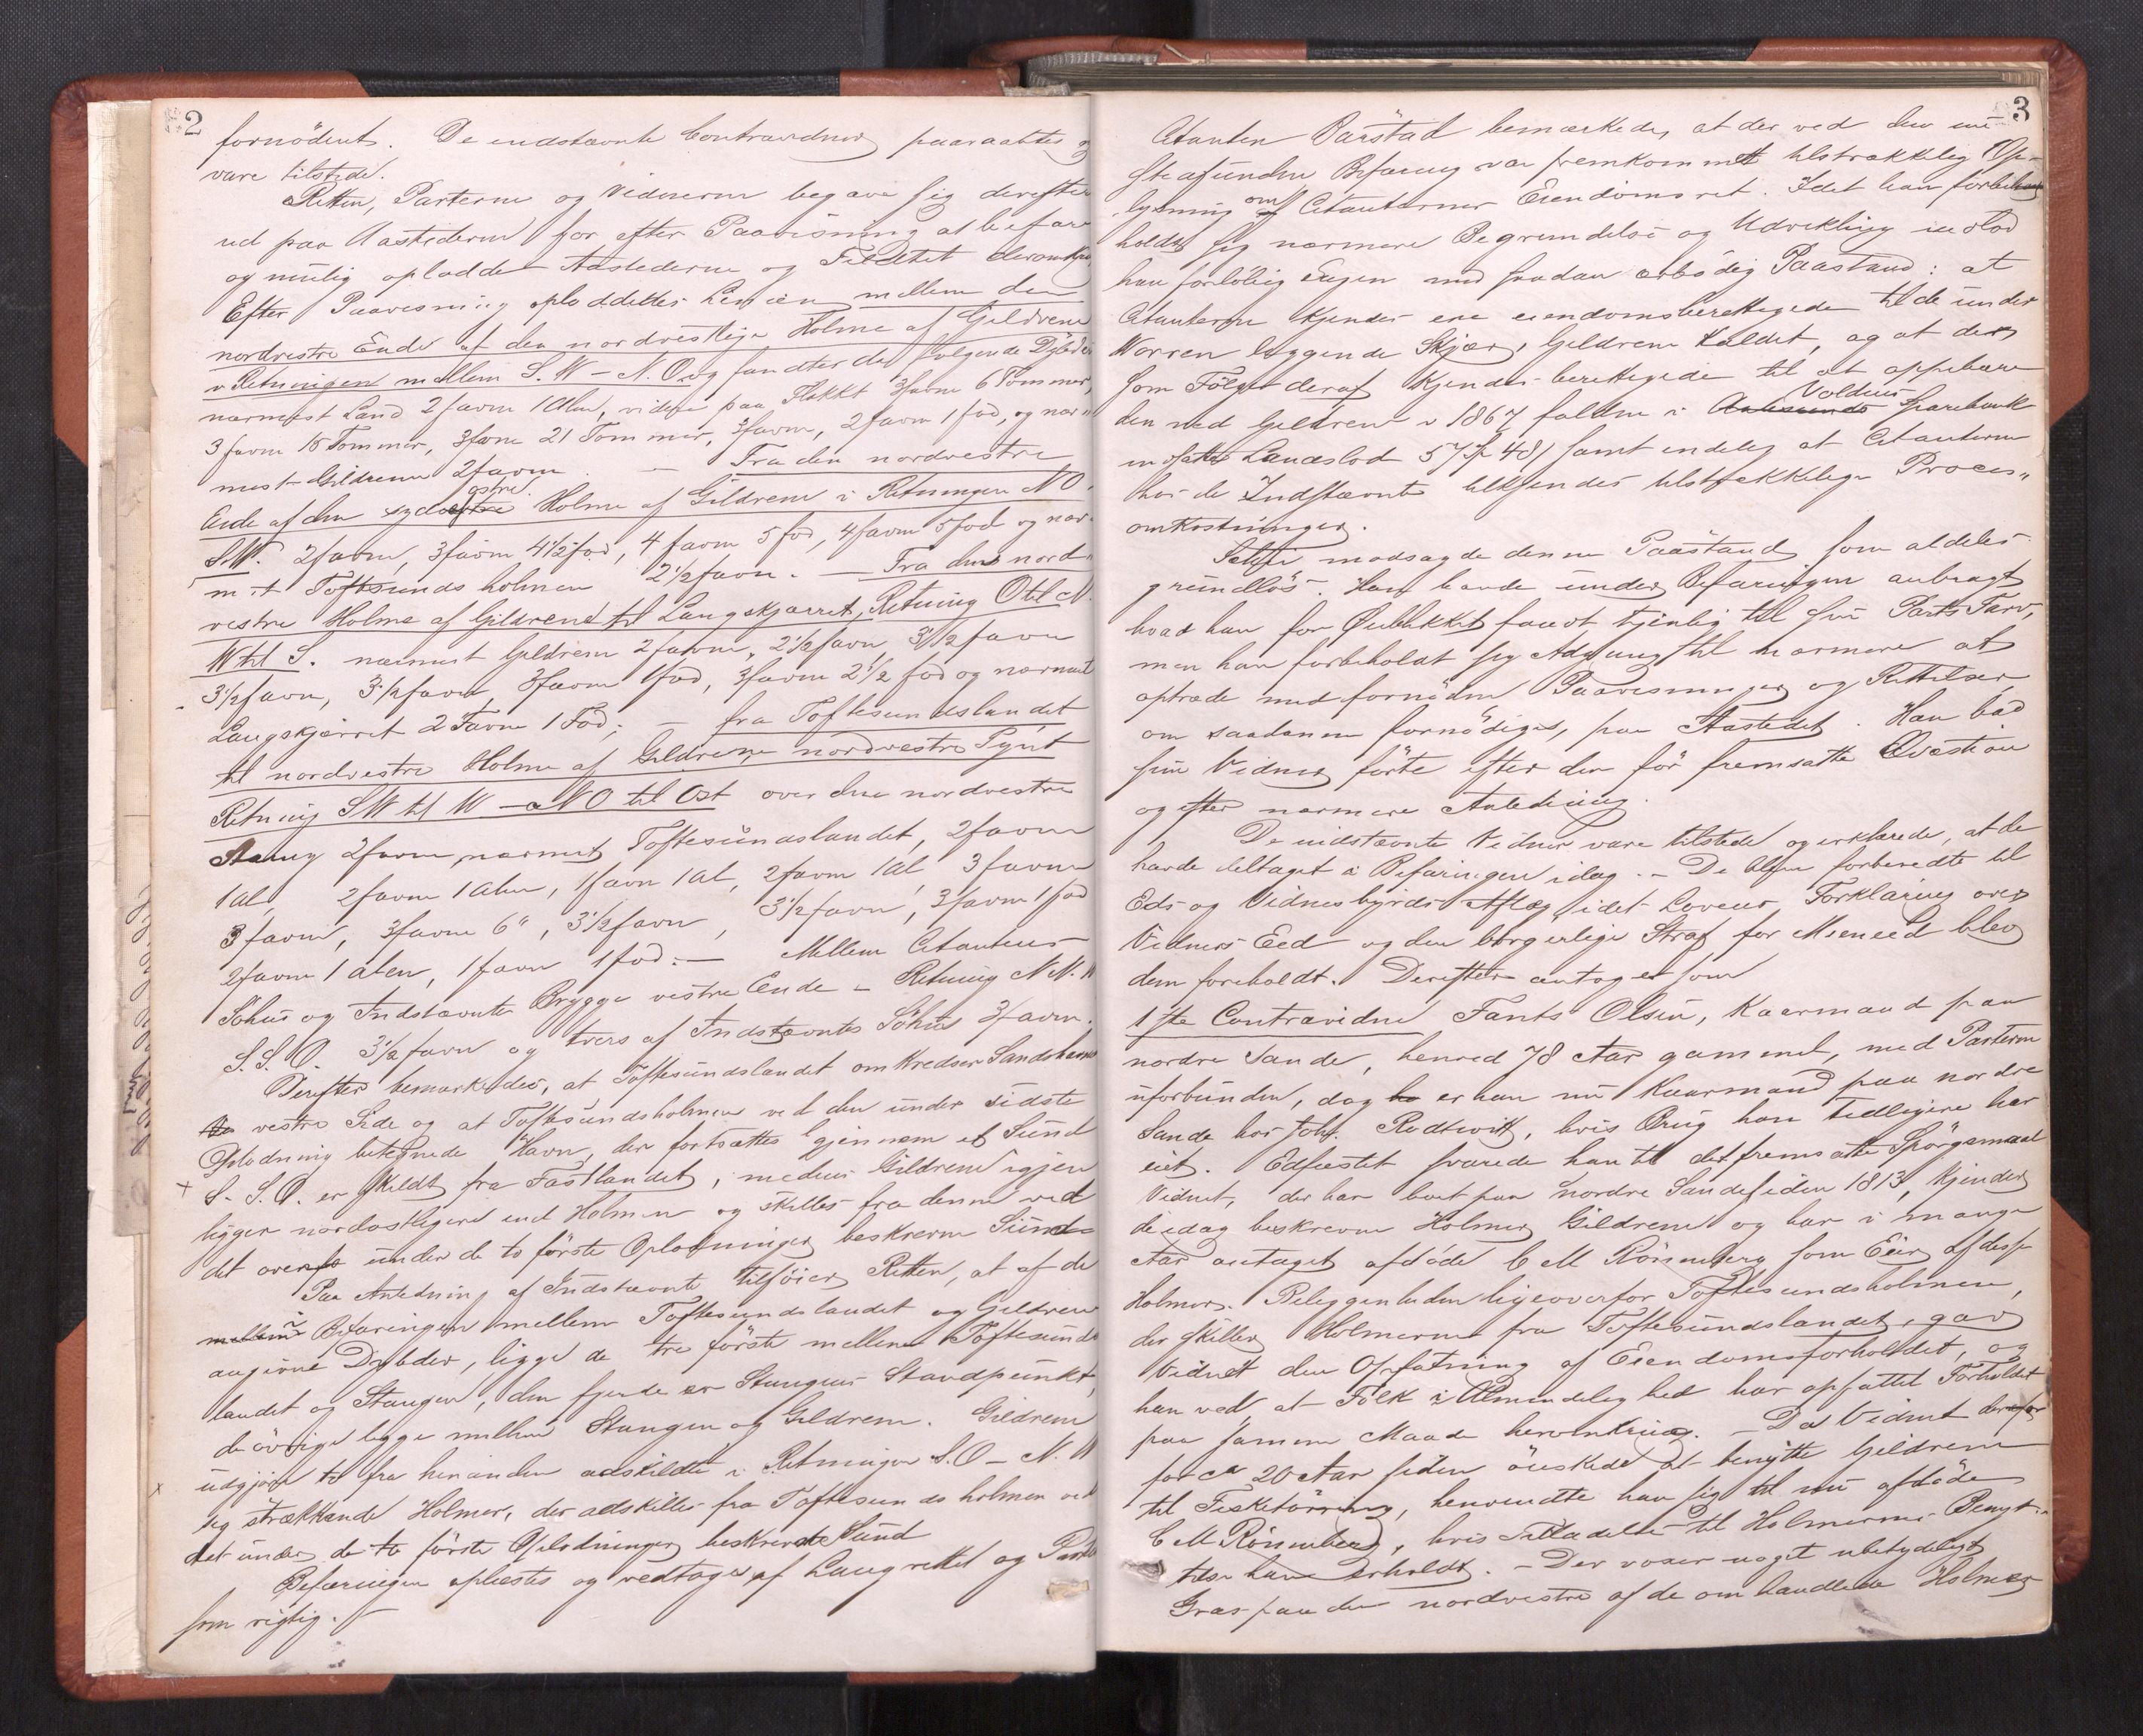 2
fornödent. De indstævnte Contravidner paaraabtes og
vare tilstede.
Retten, Parterne og Vidnerne begave sig derefter
ud paa Aastederne for efter Paavisning at befare
og mulig oplodde Aastederne og Feldtet deromkring
Efter Paavisning oploddettes Linien mellem den
nordvestre Ende af den nordvestlige Holme af Gildrene
i Retningen mellem S.W – N.O. og fandtes der følgende Dybder
nærmest Land 2 favne 1 Alen, videre paa Flekkt 3 favne 6 Tommer,
3 favne 18 Tommer, 3 favne 21 Tommer, 3 favne, 2 favne 1 fod, og nær-
mest Gildrene 2 favne. – Fra den nordvestre
Ende af den sydøstre Holme af Gildrene i Retningen NO.
S.W. 2 favne, 3 favne 4 1/2 fod, 4 favne 5 fod, 4 favne 5 fod og nær-
mest Toftesundsholmen 2 1/2 favn. – Fra den nord-
vestre Holme af Gildrene til Langskjærret, Retning O til N.
W til S. nærmest Gildrene 2 favne, 2 1/2 favn, 3 1/2 favn
3 1/2 favn, 3 1/2 favn, 3 favne 1 fod, 3 favne 2 1/2 fod og nærmest
Langskjærret 2 Favne 1 Fod; – fra Toftesundslandet
til nordvestre Holme af Gildrene nordvestre Pynt
Retning SW til W – NO til Ost over den nordvestre
Stang 2 favne nærmest Toftesundslandet, 2 favne
1 al, 2 favne 1 Alen, 1 favn 1 al, 2 favne 1 al 3 favne
3 favne, 3 favne 6", 3 1/2 favn, 3 1/2 favn, 3 favne 1 fod
2 favne 1 alen, 1 favn 1 fod. – Mellem Citantens
Söhus og Indstævntes Brygge vestre Ende – Retning N.N.W
S.S.O. 3 1/2 favn og tvers af Indstævntes Söhus 3 favn.
Derefter bemærkedes, at Toftesundslandet omkredser Sandshavns
vestre Side og at Toftesundsholmen ved den under sidste
Oplodning betegnede Havn, der fortsættes gjennem et Sund
S. S.O. er skildt fra Fastlandet, medens Gildrene igjen
ligger nordostligere end Holmen og skilles fra denne ved
det under de to förste Oplodninger beskrevne Sund
Paa Anledning af Indstævnte tilföier Retten, at af de
i Befaringen mellem Toftesundslandet og Gildrene
angivne Dybder, ligge de tre förste mellem Toftesunds
landet og Stangen, den fjerde er Stangens Standpunkt,
de övrige ligge mellem Stangen og Gildrene. Gildrene
udgjöre to fra hinanden adskildte i Retningen S.O – N.W
sig strækkende Holmer, der adskilles fra Toftesundsholmen ved
det under de to förste Oplodninger beskrevne Sund
Befaringen oplæstes og vedtoges af Laugrettet og Parterne
som rigtig.
3
Citanten Barstad bemærkede, at der ved den nu
stedfundne Befaring var fremkommet tilstrækkelig Op-
lysning om Citanternes Eiendomsret. Idet han forbe-
holdt sig nærmere Begrundelse og Udvikling indlod
han forlöbig Sagen med saadan ærbödig Paastand: at
Citanterne kjendes ene eiendomsberettigede til de under
Worren liggende Skjær, Gildrene kaldet, og at de
som Fölge deraf kjendes berettigede til at oppebære
den ved Gildrene i 1867 faldne i Voldens Sparebank
indsatte Landslod 57 Sp 48 samt endelig at Citanterne
hos de Indstævnte tilkjendes tilstrækkelige Proces-
omkostninger.
modsagde denne Paastand som aldeles
grundlös. Han havde under Befaringen anbragt
hvad han for Øieblikket fandt tjenlig til sin Parts Tarv,
men han forbeholdt sig Adgang til nærmere at
optræde med fornödne Paavisninger og Rettelser
om saadanne fornödiges, paa Aastedet. Han bad
sine Vidner förte efter den för fremsatte Qvæstion
og efter nærmere Anledning.
De indstævnte Vidner vare tilstede og erklærede, at de
havde deltaget i Befaringen idag. – De bleve forberedte til
Eds- og Vidnesbyrds Aflæg, idet Lovens Forklaring over
Vidners Eed og den borgerlige Straf for Meneed blev
dem foreholdt. Derefter antoges som
1ste Contravidne Fants Olsen, Kaarmand paa
nordre Sande, henved 78 Aar gammel, med Parterne
uforbunden, dog er han nu Kaarmand paa nordre
Sande hos Joh. Rodtwitt, hvis Brug han tidligere har
eiet. Edfæstet svarede han til det fremsatte Spörgsmaal
Vidnet, der har boet paa nordre Sande siden 1813, kjender
de idag beskrevne Holmer Gildrene og har i mange
Aar antaget afdöde C M Rönneberg som Eier af disse
Holmer. Beliggenheden ligeoverfor Toftesundsholmen,
der skiller Holmerne fra Toftesundslandet, gav
Vidnet den Opfatning af Eiendomsforholdet, og
han ved at Folk i Almindelighed har opfattet Forholdet
paa samme Maade heromkring. – Da Vidnet derfor
for ca 20 Aar siden önskede at benytte Gildrene
til Fisketörring, henvendte han sig til nu afdöde
C M Rönneberg, hvis Tilladelse til Holmernes Benyt-
telse han erholdt. – Der voxer noget ubetydeligt
Græs paa den nordvestre af de omhandlede Holmer